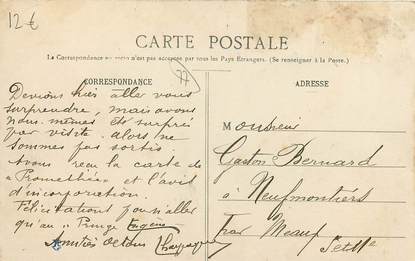 12 €
CARTE POSTALE
La Correspondance au recto n'est pas acceptée par tous les Pays Étrangers. (Se renseigner à la Poste.)
77
CORRESPONDANCE
Devions hier aller vous
surprendre, mais avons
nous-mêmes été surpris
par visite. Alors ne
sommes pas sortis.
Avons reçu la carte de
"Prométhée" et l'avis
d'incorporation.
Félicitations pour n'aller
qu'au
Amitiés de tous
ADRESSE
Monsieur
Gaston Bernard
à Neufmontiers
Par Meaux
S et Me